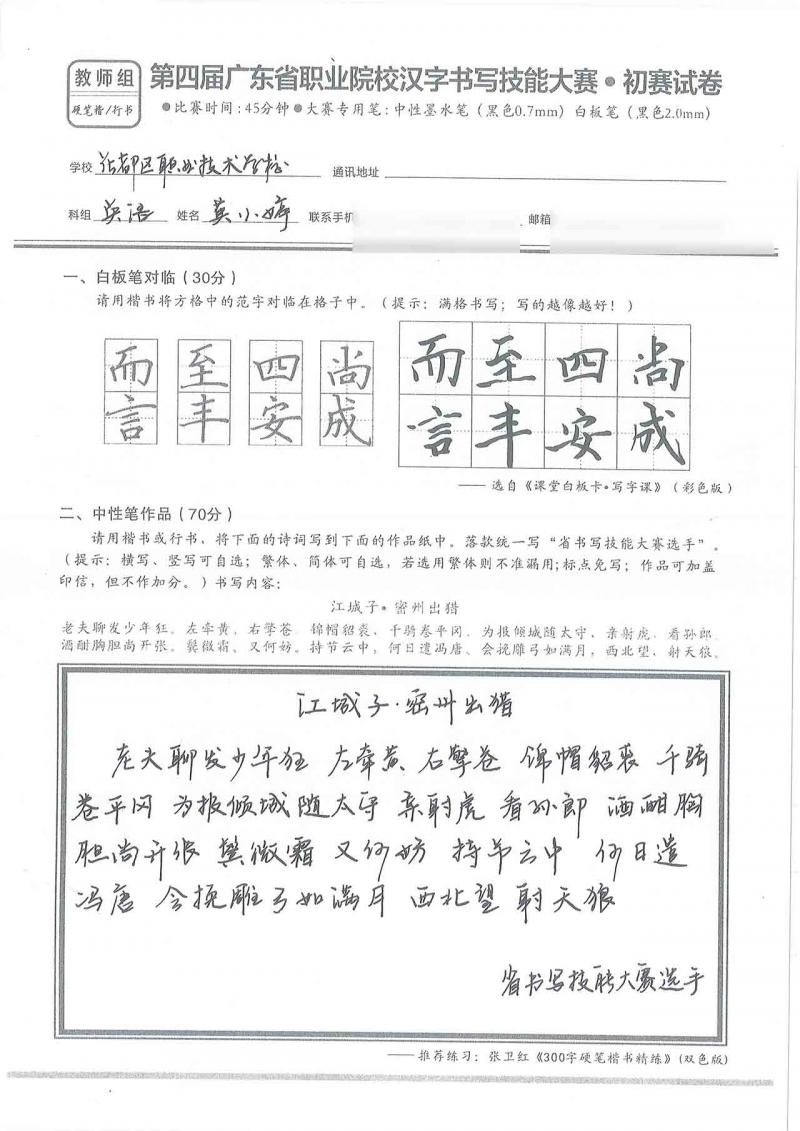 教师组
硬笔楷/行书
第四届广东省职业院校汉字书写技能大赛•初赛试卷
●比赛时间:45分钟●大赛专用笔:中性墨水笔(黑色0.7mm)白板笔(黑色2.0mm)
学校 花都区职业技术学校 通讯地址
科组 英语 姓名 莫小婷 联系手机 邮箱
一、白板笔对临(30分)
请用楷书将方格中的范字对临在格子中。(提示:满格书写;写的越像越好!)
而 至 四 尚 而 至 四 尚
言 丰 安 成 言 丰 安 成
——选自《课堂白板卡•写字课》(彩色版)
二、中性笔作品(70分)
请用楷书或行书,将下面的诗词写到下面的作品纸中。落款统一写“省书写技能大赛选手”。
(提示:横写、竖写可自选;繁体、简体可自选,若选用繁体则不准漏用;标点免写;作品可加盖
印信,但不作加分。)书写内容:
江城子•密州出猎
老夫聊发少年狂。左牵黄,右擎苍。锦帽貂裘,千骑卷平冈。为报倾城随太守,亲射虎,看孙郎。
酒酣胸胆尚开张。鬓微霜、又何妨。持节云中,何日遣冯唐、会挽雕弓如满月,西北望,射天狼。
江城子·密州出猎
老夫聊发少年狂 左牵黄 右擎苍 锦帽貂裘 千骑
卷平冈 为报倾城随太守 亲射虎 看孙郎 酒酣胸
胆尚开张 鬓微霜 又何妨 持节云中 何日遣
冯唐 会挽雕弓如满月 西北望 射天狼
省书写技能大赛选手
——推荐练习:张卫红《300字硬笔楷书精练》(双色版)